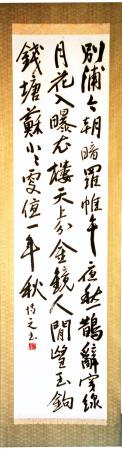 別浦今朝暗羅帷午夜愁鵲辭穿線
月花入曝衣樓天上分金鏡人間望玉鉤
錢塘蘇小々更值一年秋